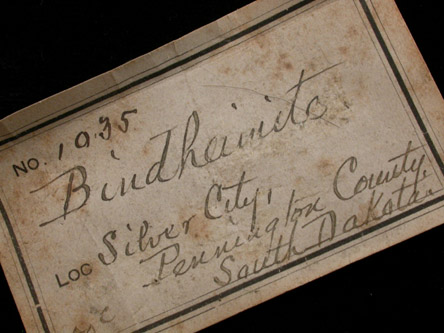 No. 1035
Bindheimite
Loc Silver City,
Pennington County,
South Dakota.